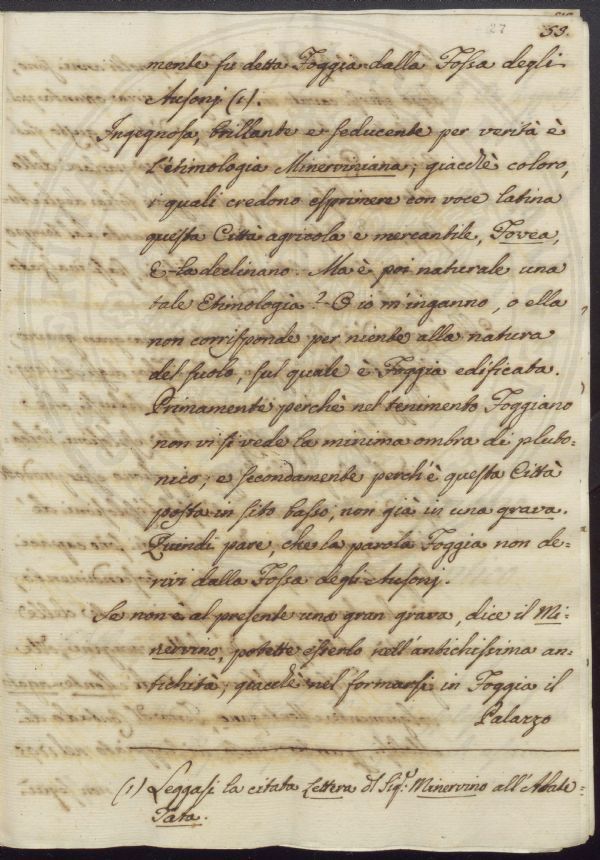 27
53.
mente fu detta Foggia dalla Fossa degli
Ausonj (1).
Ingegnosa, brillante e seducente per verità è
l'etimologia Minerviniana; giacchè coloro,
i quali credono esprimere con voce latina
questa Città agricola e mercantile, Fovea,
la declinano. Ma è poi naturale una
tale Etimologia? O io m'inganno, o ella
non corrisponde per niente alla natura
del suolo, sul quale è Foggia edificata.
Primamente perchè nel tenimento Foggiano
non vi si vede la minima ombra di pluto-
nico; e secondamente perch'è questa Città
posta in sito basso, non già in una grava.
Quindi pare, che la parola Foggia non de-
rivi dalla Fossa degli Ausonj.
Se non è al presente una gran grava, dice il Mi-
nervino, potette esserlo nell'antichissima an-
tichità; giacchè nel formarsi in Foggia il
Palazzo
(1) Leggasi la citata Lettera del Sig.r Minervino all'Abate
Tata.